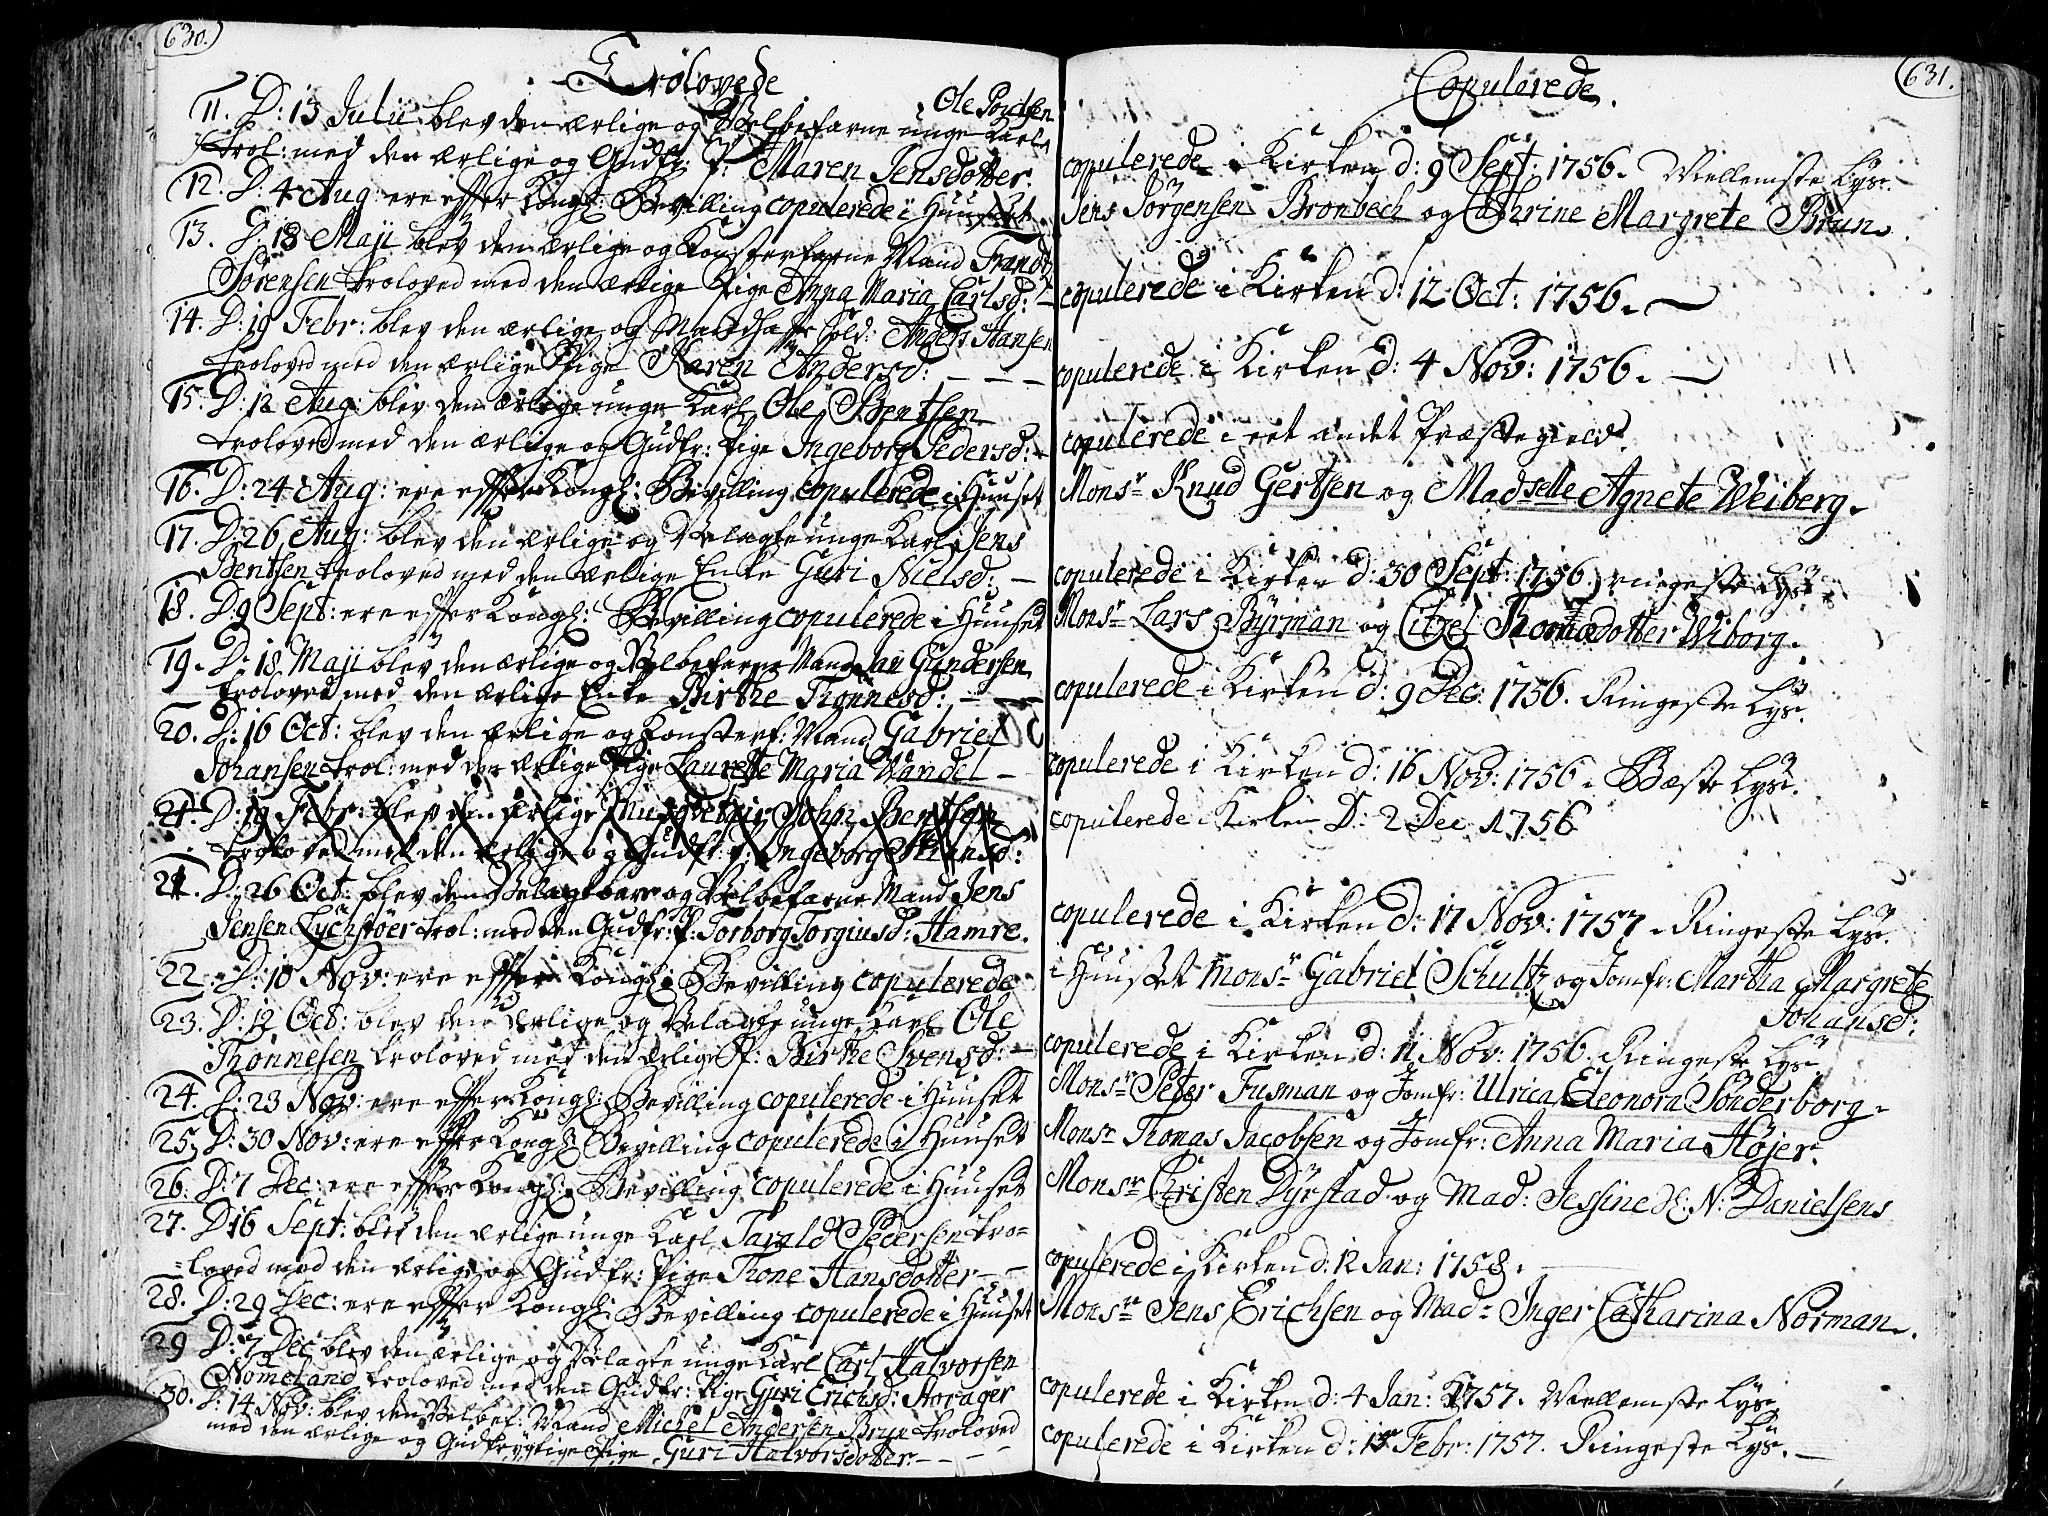 630.
Trolovede
11. D: 13 Julii blev den ærlige og Velbefarne unge Karl Ole Poulsen
trol: med den ærlige og Gudfr: P: Maren Jensdotter.
12. D. 4 Aug: ere efter Kongl: Bevilling copulerede i Huuset
13. D. 18 Maji blev den ærlige og Konsterfarne Mand Frands
Sörensen troloved med den ærlige Pige Anna Maria Carlsd: –
14. D: 19 Febr: blev den ærlige og Mandhafte Sold: Anders Hansen
troloved med den ærlige Pige Karen Andersd: – – –
15. D: 12 Aug: blev den ærlige unge Karl Ole Bentsen
troloved med den ærlige og Gudfr: Pige Ingeborg Pedersd: –
16. D: 24 Aug: ere efter Kongl: Bevilling copulerede i Huuset
17. D. 26 Aug: blev den ærlige og Velagte unge Karl Jens
Bentsen troloved med den ærlige Enke Guri Nielsd: –
18. D. 9 Sept: ere efter Kongl: Bevilling copulerede i Huuset
19. D: 18 Maji blev den ærlige og Velbefarne Mand Jan Gundersen
troloved med den ærlige Enke Birthe Thonnesd: –
20. D: 16 Oct: blev den ærlige og Konsterf: Mand Gabriel
Johansen trol: med den ærlige Pige Laurette Maria Wandel –
21. D: 19 Febr: blev den ærlige Musqvetair John Bentsen
troloved med den ærlige og Gudfr: P: Ingeborg
21. D: 26 Oct: blev den Velagtbare og Velbefarne Mand Jens
Jensen Lychstöer trol: med den Gudfr: P: Torborg Torgiusd: Hamre.
22. D: 10 Nov: ere efter Kongl: Bevilling copulerede
23. D: 12 Oct: blev den ærlige og Velagte unge Karl Ole
Thonnesen troloved med den ærlige P: Birthe Svensd: –
24. D: 23 Nov: ere efter Kongl: Bevilling copulerede i Huuset
25. D: 30 Nov: ere efter Kongl: Bevilling copulerede i Huuset
26. D: 7 Dec: ere efter Kongl: Bevilling copulerede i Huuset
27. D 16 Sept: blef den ærlige unge Karl Tarald Pedersen tro=
=loved med den ærlige og Gudfr: Pige Thone Hansdotter – –
28. D: 29 Dec: ere efter Kongl: Bevilling copulerede i Huuset
29 D: 7 Dec blev den ærlige og Velagte unge Karl Carl Halvorsen
Nomeland troloved med den Gudfr: Pige Guri Erichsd: Horager
30. D: 14 Nov: blev den Velbef: Mand Michel Andersen Brun troloved
med den ærlige og Gudfrygtige Pige Guri Halvorsdotter – –
631.
Copulerede.
copulerede i Kirken d: 9 Sept: 1756. Mellemste Lyse.
Jens Jörgensen Bronbech og Cathrine Margrete Brun.
copulerede i Kirken d: 12 Oct: 1756. –
copulerede i Kirken d: 4 Nov: 1756. –
copulerede i eet andet Præstegield.
Monsr Knud Gertsen og Madselle Agnete Weiberg.
copulerede i Kirken d: 30 Sept: 1756. ringeste Lyse.
Monsr Lars Byrman og Citzel Thomædotter Wiborg.
copulerede i Kirken d: 9 Dec: 1756. Ringeste Lyse.
copulerede i Kirken d: 16 Nov: 1756. Bæste Lyse.
copulerede i Kirken D: 2 Dec 1756
copulerede i Kirken d: 17 Nov: 1757. Ringeste Lyse.
i Huuset Monsr Gabriel Schultz og Jomfr: Martha Margrete
Johansd:
copulerede i Kirken d: 11 Nov: 1756. Ringeste Lyse
Monsr Peter Tusman og Jomfr: Ulrica Eleonora Sönderborg.
Monsr Thomas Jacobsen og Jomfr: Anna Maria Höjer.
Monsr Christen Dyrstad og Mad: Jessine Sl: N: Danielsens
copulerede i Kirken d: 12 Jan: 1758.
Monsr Jens Erichsen og Mad: Inger Catharina Norman.
copulerede i Kirken d: 4 Jan: 1757. Mellemste Lyse
copulerede i Kirken d: 15 Febr: 1757. Ringeste Lyse. –